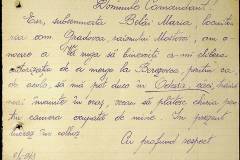 Domnule Comandant!
Eu, subsemnata Belăi Maria locuitoa
rea com Gradovca raionului Mostovoi, am o
noare a Vă ruga să binevoiți a-mi elibera
autorizația de a merge la Berezovca pentru ca
de acolo, să mă pot duce în Odesa,
mai înainte în oraș, vreau să plătesc chiria pen
tru camera ocupată de mine. În prezent
lucrez în colhoz.
Cu profund respect